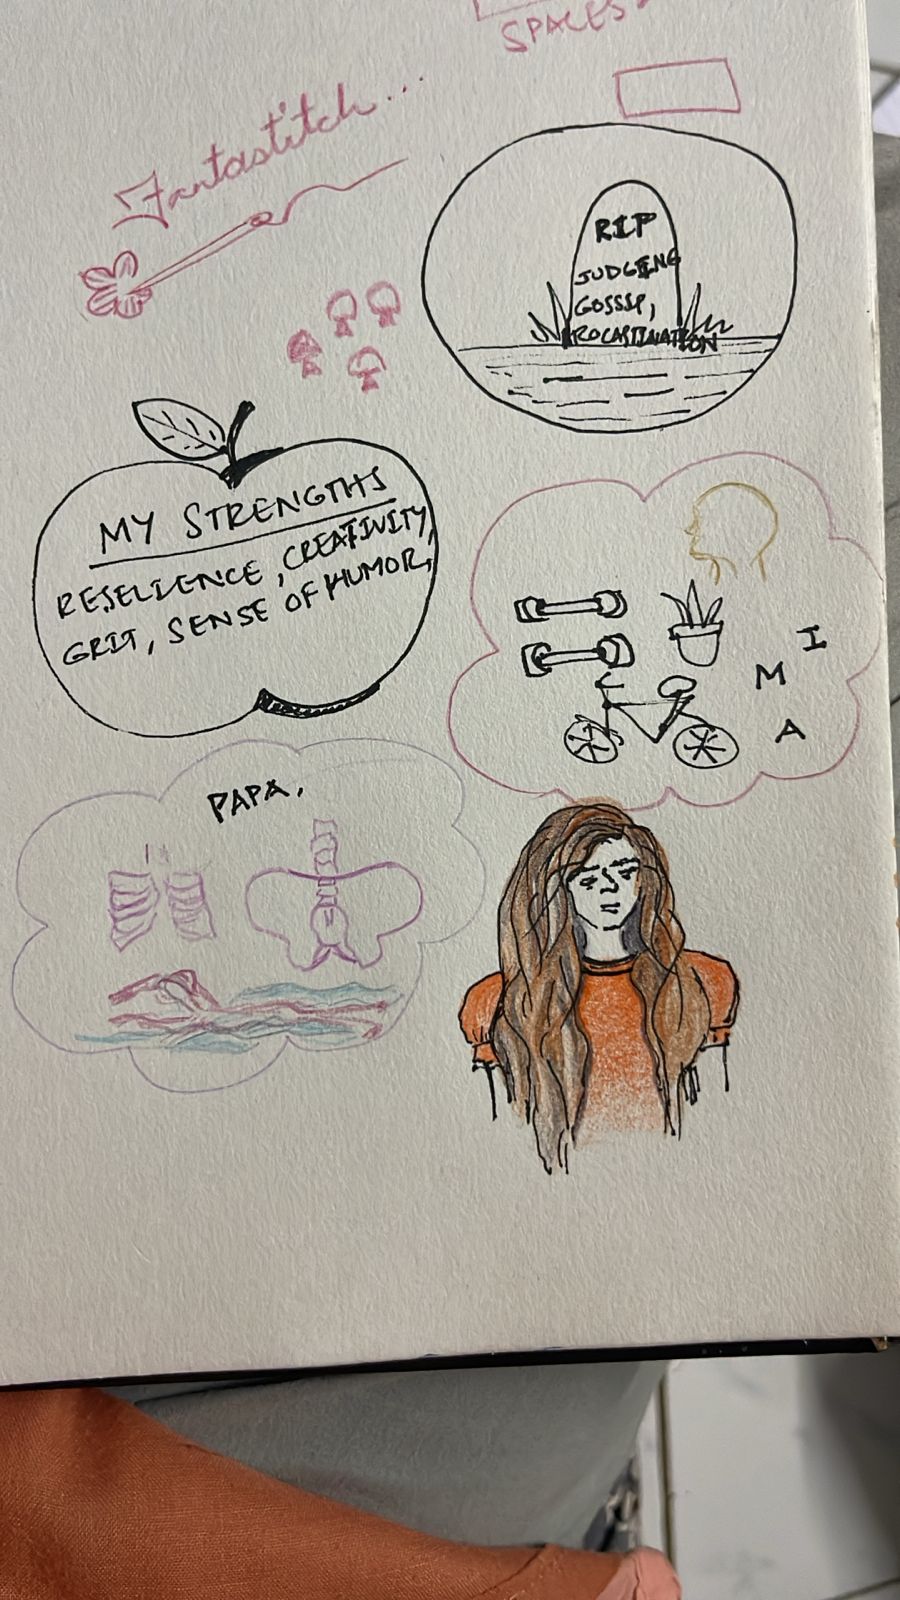 SPACES
Fantastitch...
RIP
JUDGEING
GOSSIP,
PROCASTINATION
MY STRENGTHS
RESELIENCE, CREATIVITY,
GRIT, SENSE OF HUMOR,
M I
A
PAPA,